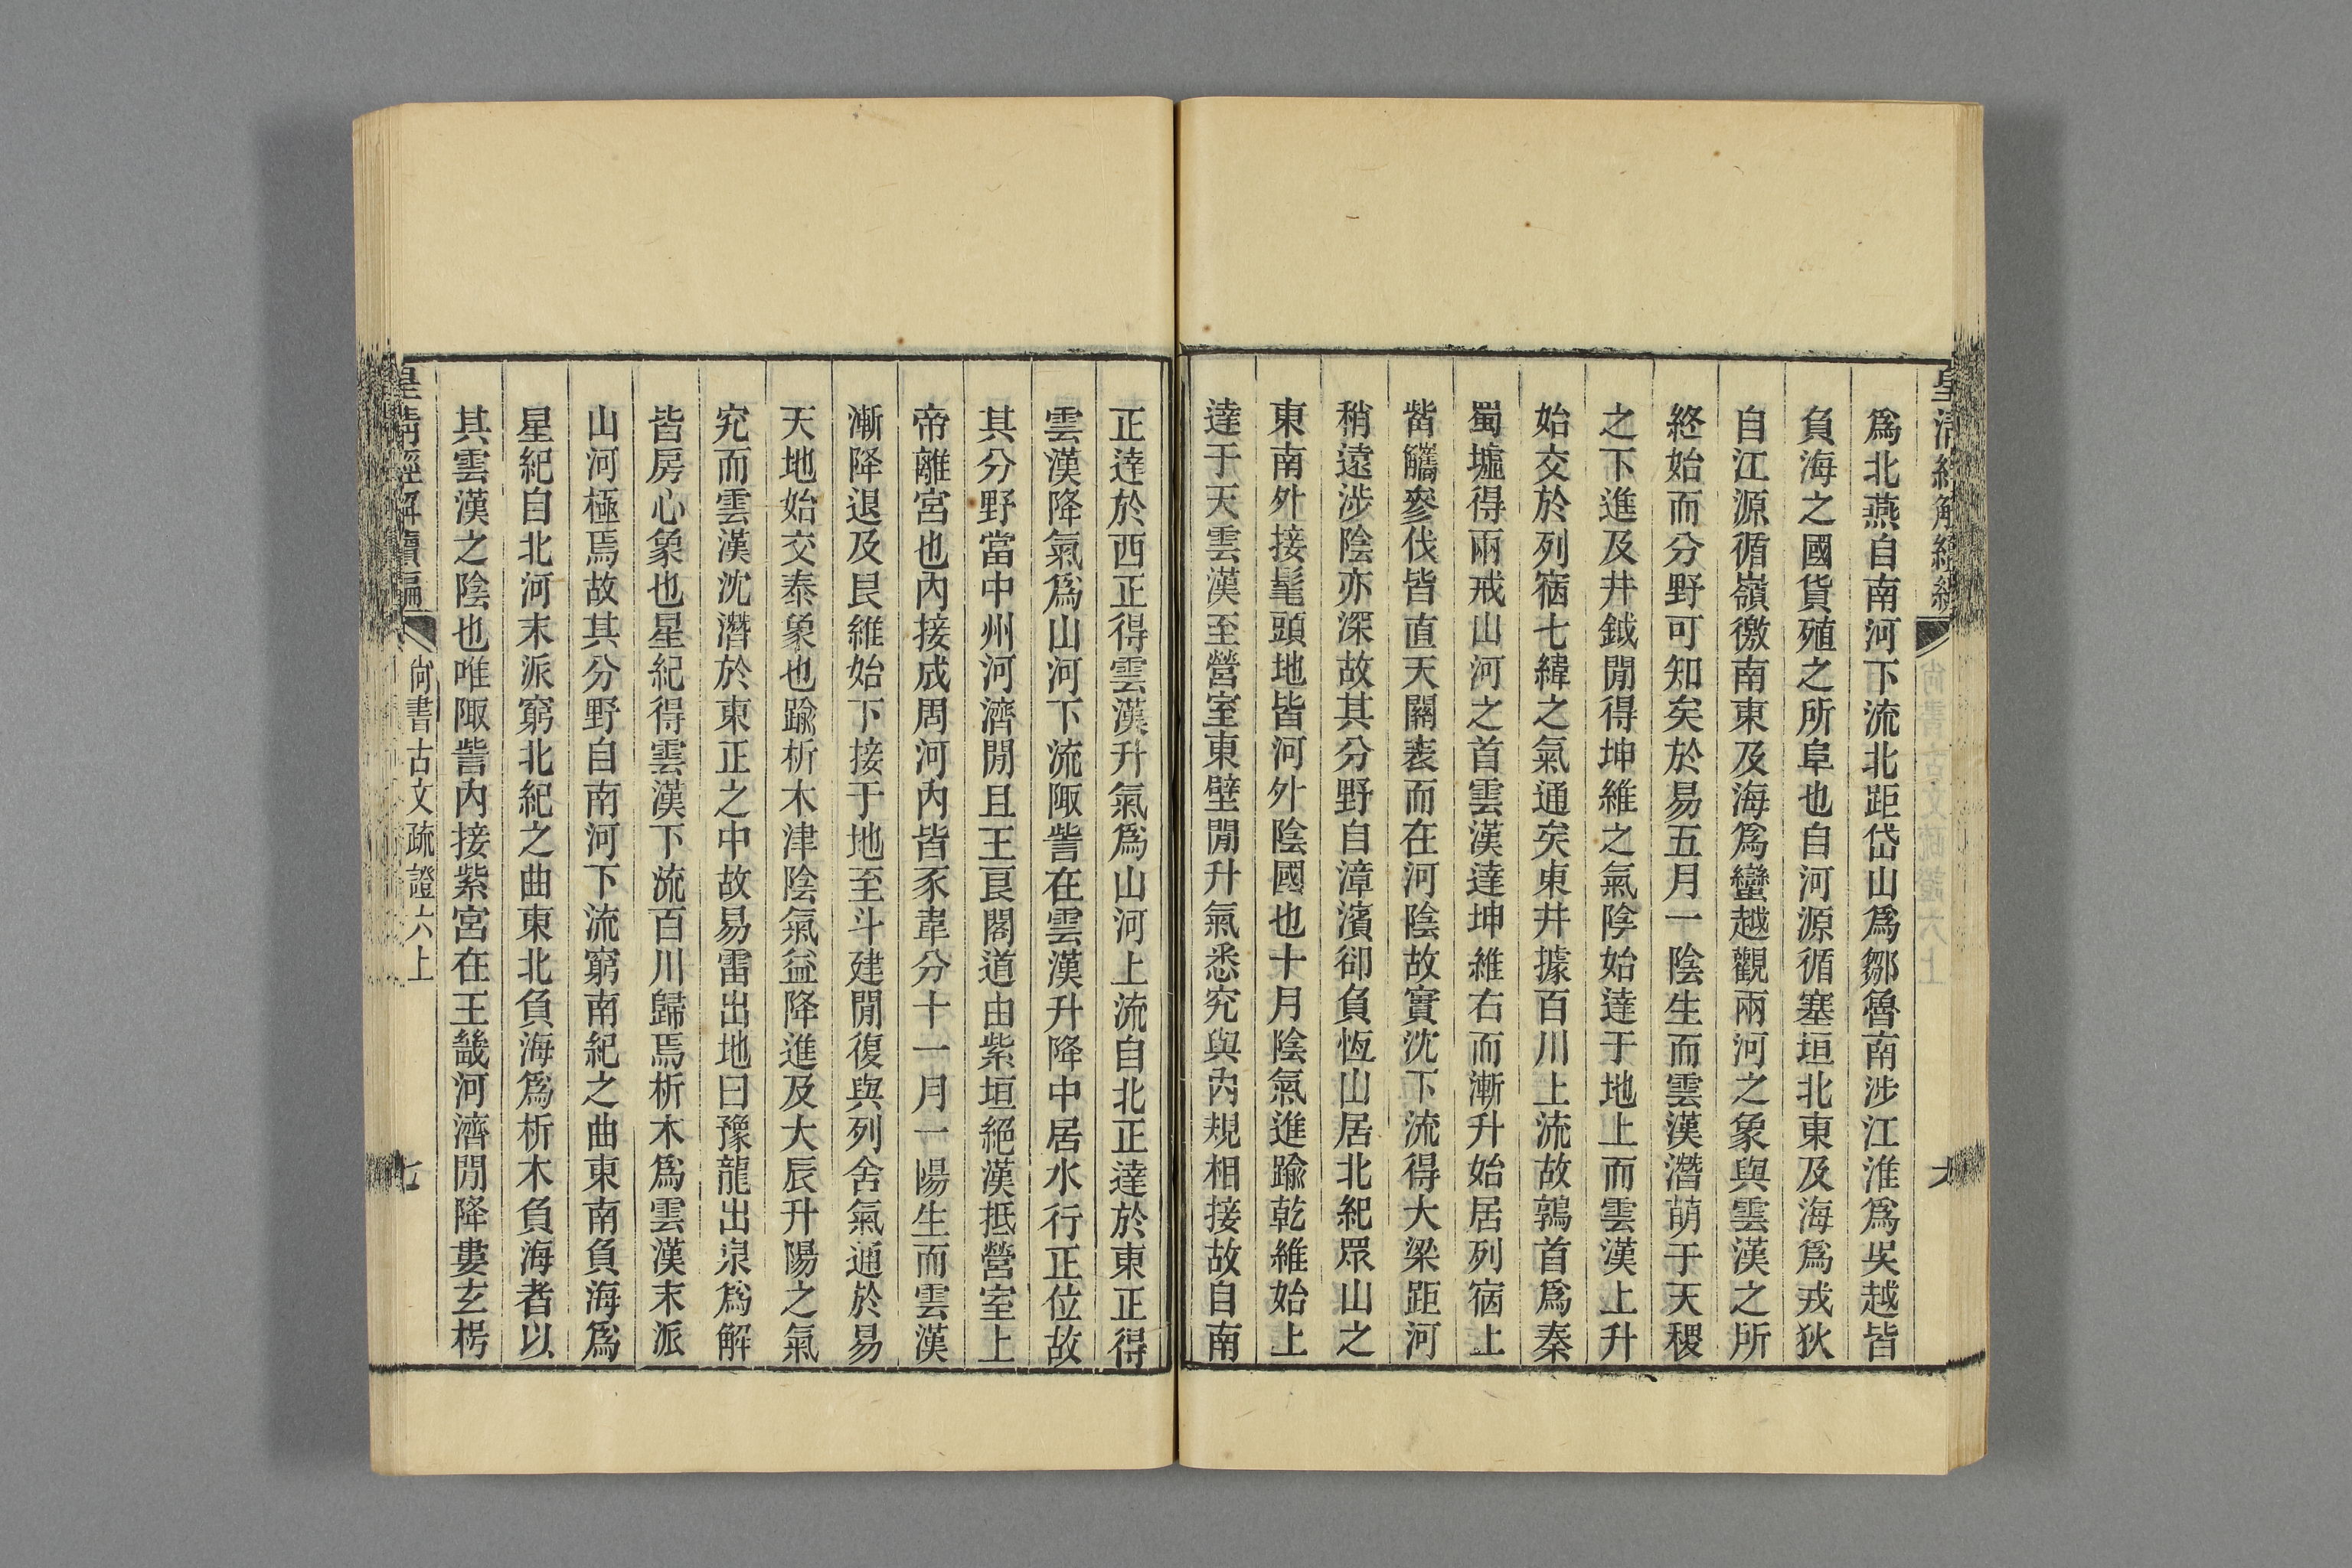 皇清經解續編
爲北燕自南河下流北距岱山爲鄒魯南涉江淮爲吳越皆
負海之國貨殖之所阜也自河源循塞垣北東及海爲戎狄
自江源循嶺徼南東及海爲蠻越觀兩河之象與雲漢之所
終始而分野可知矣於易五月一陰生而雲漢潛萌于天稷
之下進及井鉞閒得坤維之氣陰始達于地上而雲漢上升
始交於列宿七緯之氣通矣東井據百川上流故鶉首爲秦
蜀墟得兩戒山河之首雲漢達坤維右而漸升始居列宿上
觜觿參伐皆直天關表而在河陰故實沈下流得大梁距河
稍遠涉陰亦深故其分野自漳濱卻負恆山居北紀眾山之
東南外接髦頭地皆河外陰國也十月陰氣進踰乾維始上
達于天雲漢至營室東壁閒升氣悉究與內規相接故自南
正達於西正得雲漢升氣爲山河上流自北正達於東正得
雲漢降氣爲山河下流陬訾在雲漢升降中居水行正位故
其分野當中州河濟閒且王良閣道由紫垣絕漢抵營室上
帝離宮也內接成周河內皆豕韋分十一月一陽生而雲漢
漸降退及艮維始下接于地至斗建閒復與列舍氣通於易
天地始交泰象也踰析木津陰氣益降進及大辰升陽之氣
究而雲漢沈潛於東正之中故易雷出地曰豫龍出泉爲解
皆房心象也星紀得雲漢下流百川歸焉析木爲雲漢末派
山河極焉故其分野自南河下流窮南紀之曲東南負海爲
星紀自北河末派窮北紀之曲東北負海爲析木負海者以
其雲漢之陰也唯陬訾內接紫宮在王畿河濟閒降婁玄枵
皇清經解續編
尙書古文疏證六上
七